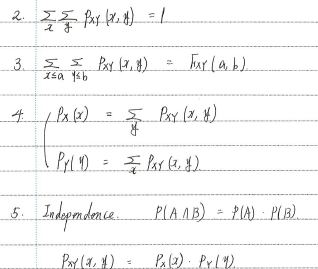 2. Σx Σy Pxy(x, y) = 1
3. Σx≤a Σy≤b Pxy(x, y) = Fxy(a, b).
4. Px(x) = Σy Pxy(x, y)
Py(y) = Σx Pxy(x, y).
5. Independence. P(A ∩ B) = P(A) · P(B).
Pxy(x, y) = Px(x) · Py(y)